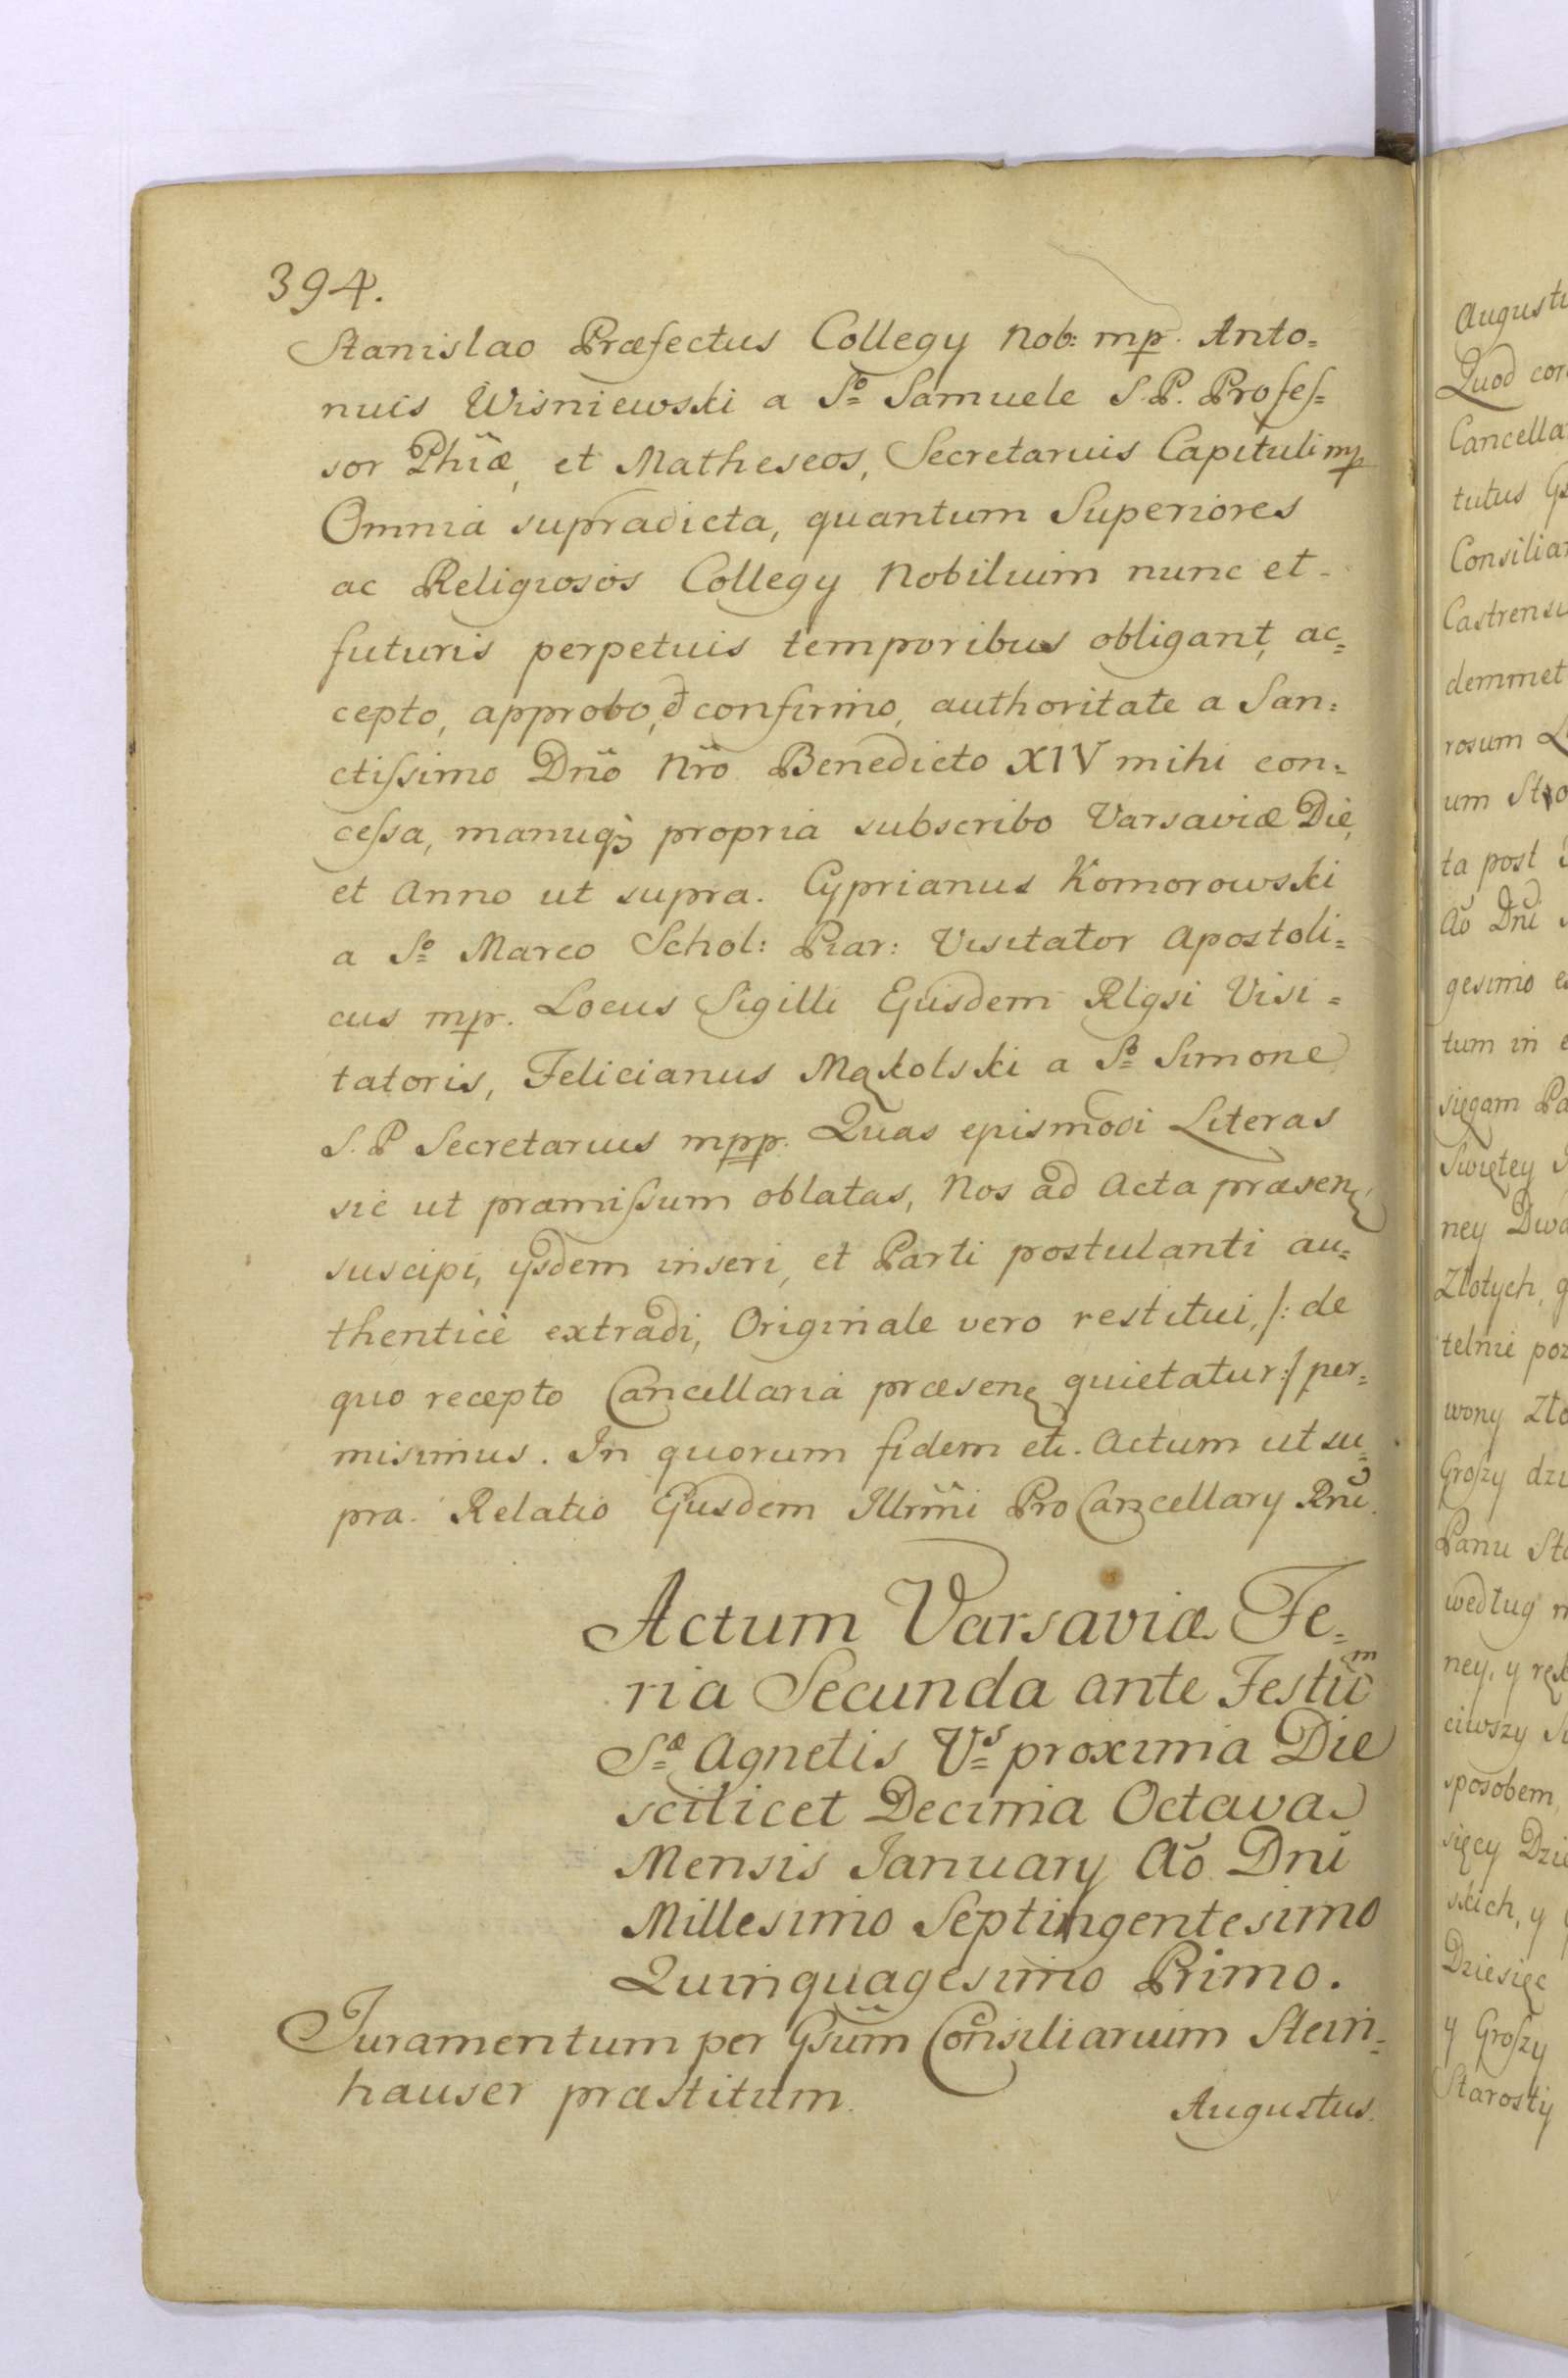 394.
Stanislao Præfectus Collegy Nob: mp. Anto=
nius Wisniewski a S⁰ Samuele S. P. Profes=
sor Phiæ, et Matheseos, Secretarius Capituli mp
Omnia supradicta, quantum Superiores
ac Religiosos Collegy Nobilium nunc et
futuris perpetuis temporibus obligant, ac=
cepto, approbo, et confirmo, authoritate a San=
ctissimo Dno Nro Benedicto XIV mihi con=
cessa, manuq3 propria subscribo Varsaviæ Die,
et Anno ut supra. Cyprianus Komorowski
a S⁰ Marco Schol: Piar: Visitator Apostoli=
cus mp. Locus Sigilli Ejusdem Rlgsi Visi=
tatoris, Felicianus Mąkolski a S⁰ Simone
S. P Secretarius mpp. Quas ejusmodi Literas
sic ut præmissum oblatas, Nos ad Acta præsen
suscipi, ijsdem inseri, et Parti postulanti au=
thenticè extradi, Originale vero restitui, /: de
quo recepto Cancellaria præsen quietatur :/ per=
misimus. In quorum fidem etc. Actum ut su=
pra. Relatio Ejusdem Illrmi Pro Cancellary Rni.
Actum Varsaviæ Fe=
ria Secunda ante Festũm
Sæ Agnetis Vs proxima Die
scilicet Decima Octava
Mensis January Aõ Dni
Millesimo Septingentesimo
Quinquagesimo Primo.
Juramentum per Gsum Consiliarium Stein=
hauser præstitum.
Augustus.
Augustu
Quod cor
Cancella
tutus
Consiliar
Castrensi
demmet
rosum
um
ta post
Aõ Dni
gesimo
tum in
sięgam
Swiętey
ney
Złotych,
telnie
wony
Groszy
Panu
według
ney, y
ciwszy
sposobem
sięcy
skich, y
Dziesięć
y Groszy
Starosty